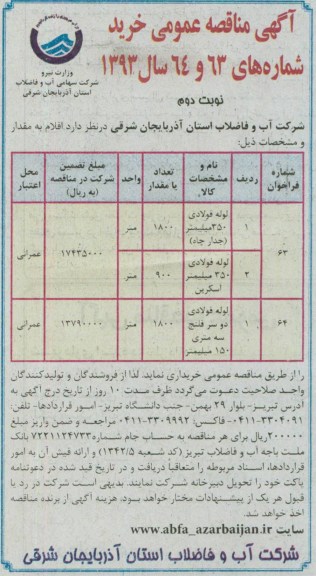 آگهی مناقصه عمومی خرید
شماره‌های ۶۳ و ۶۴ سال ۱۳۹۳
نوبت دوم
وزارت نیرو
شرکت سهامی آب و فاضلاب
استان آذربایجان شرقی
شرکت آب و فاضلاب استان آذربایجان شرقی درنظر دارد اقلام به مقدار
و مشخصات ذیل:
شماره فراخوان | ردیف | نام و مشخصات کالا | تعداد یا مقدار | واحد | مبلغ تضمین شرکت در مناقصه (به ریال) | محل اعتبار
۶۳ | ۱ | لوله فولادی ۳۵۰میلیمتر (جدار چاه) | ۱۸۰۰ | متر | ۱۷۴۳۵۰۰۰ | عمرانی
۲ | لوله فولادی ۳۵۰ میلیمتر اسکرین | ۹۰۰ | متر
۶۴ | ۱ | لوله فولادی دو سر فلنج سه متری ۱۵۰ میلیمتر | ۱۸۰۰ | متر | ۱۳۷۹۰۰۰۰ | عمرانی
را از طریق مناقصه عمومی خریداری نماید. لذا از فروشندگان و تولیدکنندگان
واجد صلاحیت دعوت می‌گردد ظرف مدت ۱۰ روز از تاریخ درج آگهی به
آدرس تبریز- بلوار ۲۹ بهمن- جنب دانشگاه تبریز- امور قراردادها- تلفن:
۰۴۱۱-۳۳۰۴۰۹۱ -فاکس: ۰۴۱۱-۳۳۰۹۹۹۲ مراجعه و ضمن واریز مبلغ
۲۰۰۰۰۰ریال برای هر مناقصه به حساب جام شماره ۷۲۲۱۱۲۴۷۳۳ بانک
ملت باجه آب و فاضلاب تبریز (کد شعبه ۱۳۴۲/۵) و ارائه فیش آن به امور
قراردادها، اسناد مربوطه را متعاقباً دریافت و در تاریخ قید شده در دعوتنامه
پاکت خود را تحویل دبیرخانه شرکت نمایند. بدیهی است شرکت در رد یا
قبول هر یک از پیشنهادات مختار خواهد بود. هزینه آگهی از برنده مناقصه
اخذ خواهد شد.
سایت www.abfa_azarbaijan.ir
شرکت آب و فاضلاب استان آذربایجان شرقی